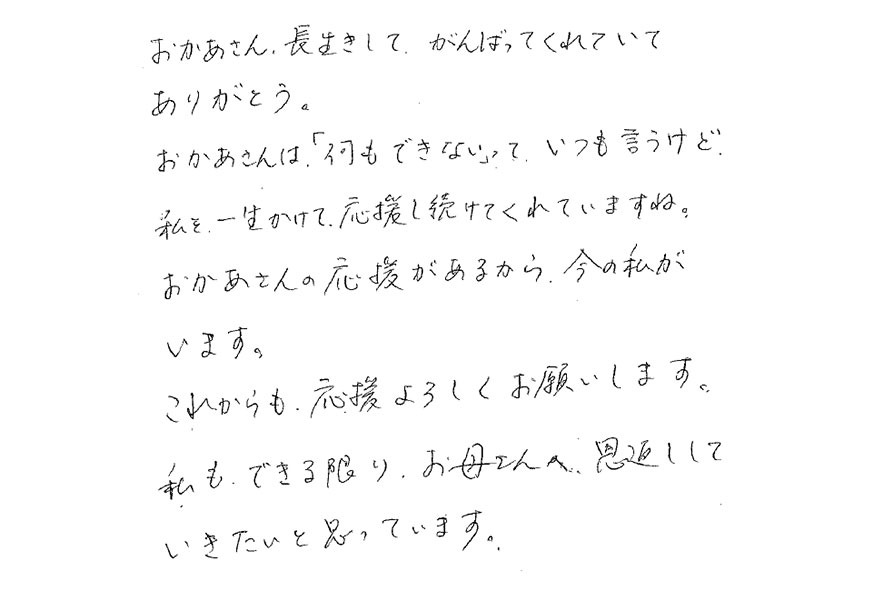 おかあさん、長生きして、がんばってくれていて
ありがとう。
おかあさんは、「何もできない」って、いつも言うけど、
私を、一生かけて、応援し続けてくれていますね。
おかあさんの応援があるから、今の私が
います。
これからも、応援よろしくお願いします。
私も、できる限り、お母さんへ、恩返しして
いきたいと思っています。